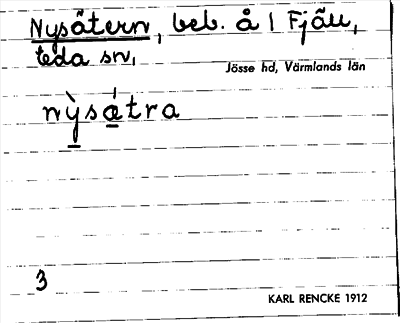 Nysätern, beb. å 1 Fjäll,
Eda sn,
Jösse hd, Värmlands län
nỳsátra
3
KARL RENCKE 1912